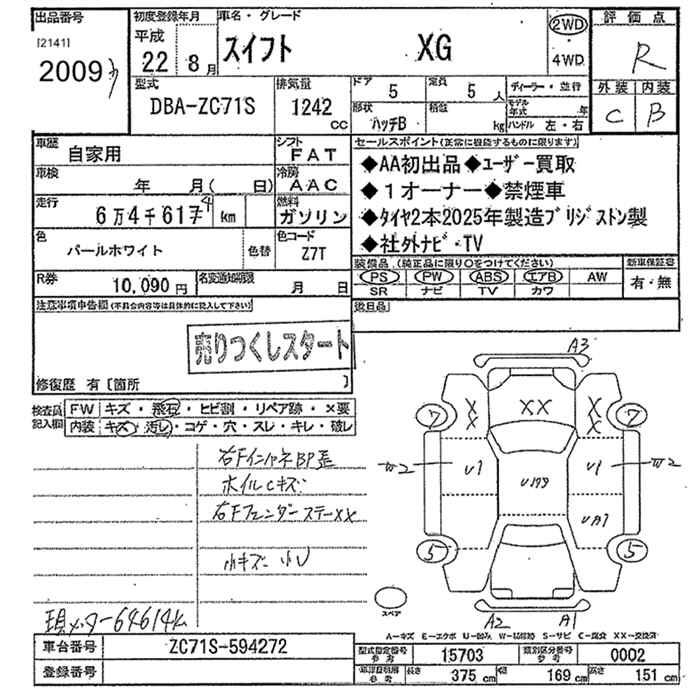 出品番号 初度登録年月 車名・グレード 2WD 評価点
[2141] 平成 スイフト XG R
2009 22 8月 4WD
型式 排気量 ドア 5 定員 5人 ディーラー・並行 外装 内装
DBA-ZC71S 1242cc 形状 ハッチB 積載 kg モデル年式 年 ハンドル 左・右 C B
車歴 自家用 シフト FAT セールスポイント(正常に機能するものに限ります)
車検 年 月(日) 冷房 AAC ◆AA初出品◆ユーザー買取
走行 6万4千617 km 燃料 ガソリン ◆1オーナー◆禁煙車
◆タイヤ2本2025年製造ブリジストン製
色 パールホワイト 色替 色コード Z7T ◆社外ナビ・TV
R券 10,090円 名変通知期限 月 日 装備品(純正品に限り○をつけてください) 新車保証書
PS PW ABS エアB AW 有・無
SR ナビ TV カワ
注意事項申告欄(不具合内容等は具体的に記入して下さい) 後日品
売りつくしスタート
修復歴 有〔箇所 〕
検査員記入欄 FW キズ・飛石・ヒビ割・リペア跡・×要
内装 キズ・汚レ・コゲ・穴・スレ・キレ・破レ
右FインナネBP歪
ホイルCキズ
右FフェンダーステーXX
小キズ 小U
現メーター64614k
A3
7 X X XX X X 7
W2 U1 U1 W2
U179
UA1
5 5
スペア
A2 A1
A-キズ E-エクボ U-凹み W-補修跡 S-サビ C-腐食 XX-交換済
車台番号 ZC71S-594272 型式指定番号 参考 15703 類別区分番号 参考 0002
登録番号 参考 長さ 375cm 幅 169cm 高さ 151cm